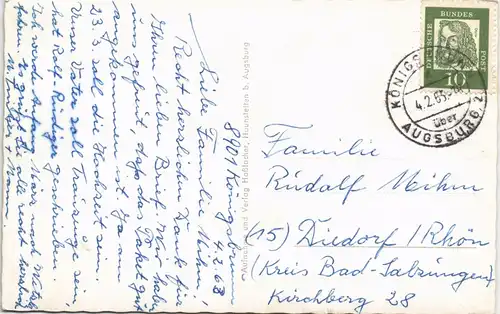 8901 Königsbrunn
4.2.63
Liebe Familie Mihm,
Recht herzlichen Dank für
Ihren lieben Brief. Wir haben
uns gefreut, daß das Paket gut
angekommen ist. Ja am
23.3. soll die Hochzeit sein.
Unser Vater soll Trauzeuge sein,
hat Rolf-Rüdiger geschrieben.
Ich werde Anfang März noch
fahren. Es grüßt Sie alle recht herzlich
Aufnahme und Verlag Haunstetten b. Augsburg
DEUTSCHE BUNDESPOST
10
4.2.63
über
AUGSBURG 2
Familie
Rudolf Mihm
(15) Diedorf/Rhön
(Kreis Bad-Salzungen)
Kirchberg 28